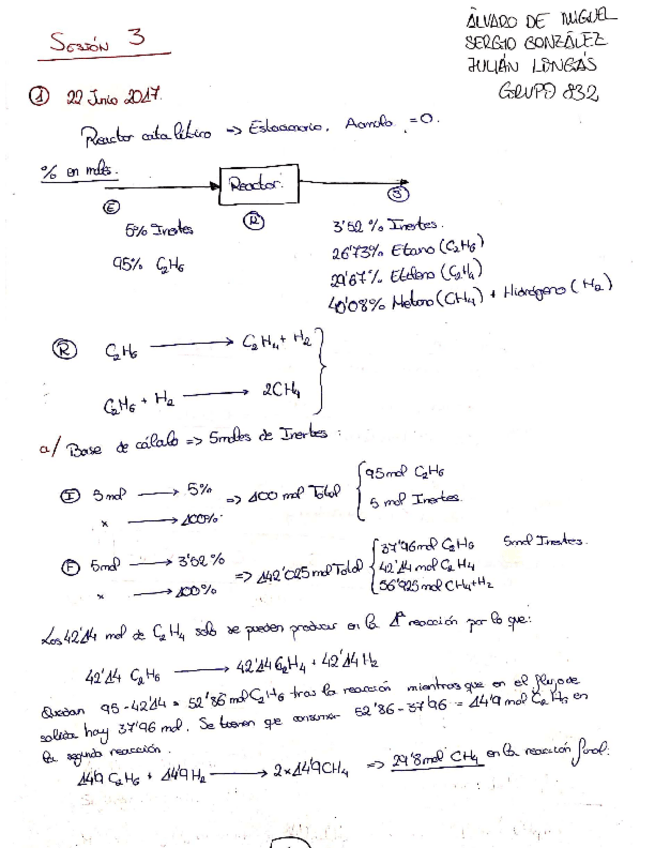 SESIÓN 3
ÁLVARO DE MIGUEL
SERGIO GONZÁLEZ
JULIÁN LONGÁS
GRUPO 832
① 22 Junio 2017.
Reactor catalítico => Estacionario. Acumula =0.
% en moles.
Reactor.
Ⓔ
Ⓡ
Ⓢ
5% Inertes
95% C₂H₆
3'52% Inertes.
26'73% Etano (C₂H₆)
29'67% Etileno (C₂H₄)
40'08% Metano (CH₄) + Hidrógeno (H₂)
Ⓡ C₂H₆ → C₂H₄ + H₂
C₂H₆ + H₂ → 2CH₄
a/ Base de cálculo => 5moles de Inertes :
Ⓘ 5mol → 5% => 100 mol Total { 95mol C₂H₆
x → 100% 5 mol Inertes
Ⓕ 5mol → 3'52% => 142'025 mol Total { 37'96mol C₂H₆ 5mol Inertes.
x → 100% 42'14 mol C₂H₄
56'925 mol CH₄+H₂
Los 42'14 mol de C₂H₄ solo se pueden producir en la 1ª reacción por lo que:
42'14 C₂H₆ → 42'14 C₂H₄ + 42'14 H₂
Quedan 95-42'14 = 52'86 mol C₂H₆ tras la reacción mientras que en el flujo de
salida hay 37'96 mol. Se tienen que consumir 52'86-37'96 = 14'9 mol C₂H₆ en
la segunda reacción.
14'9 C₂H₆ + 14'9 H₂ → 2x14'9 CH₄ => 29'8 mol CH₄ en la reacción final.